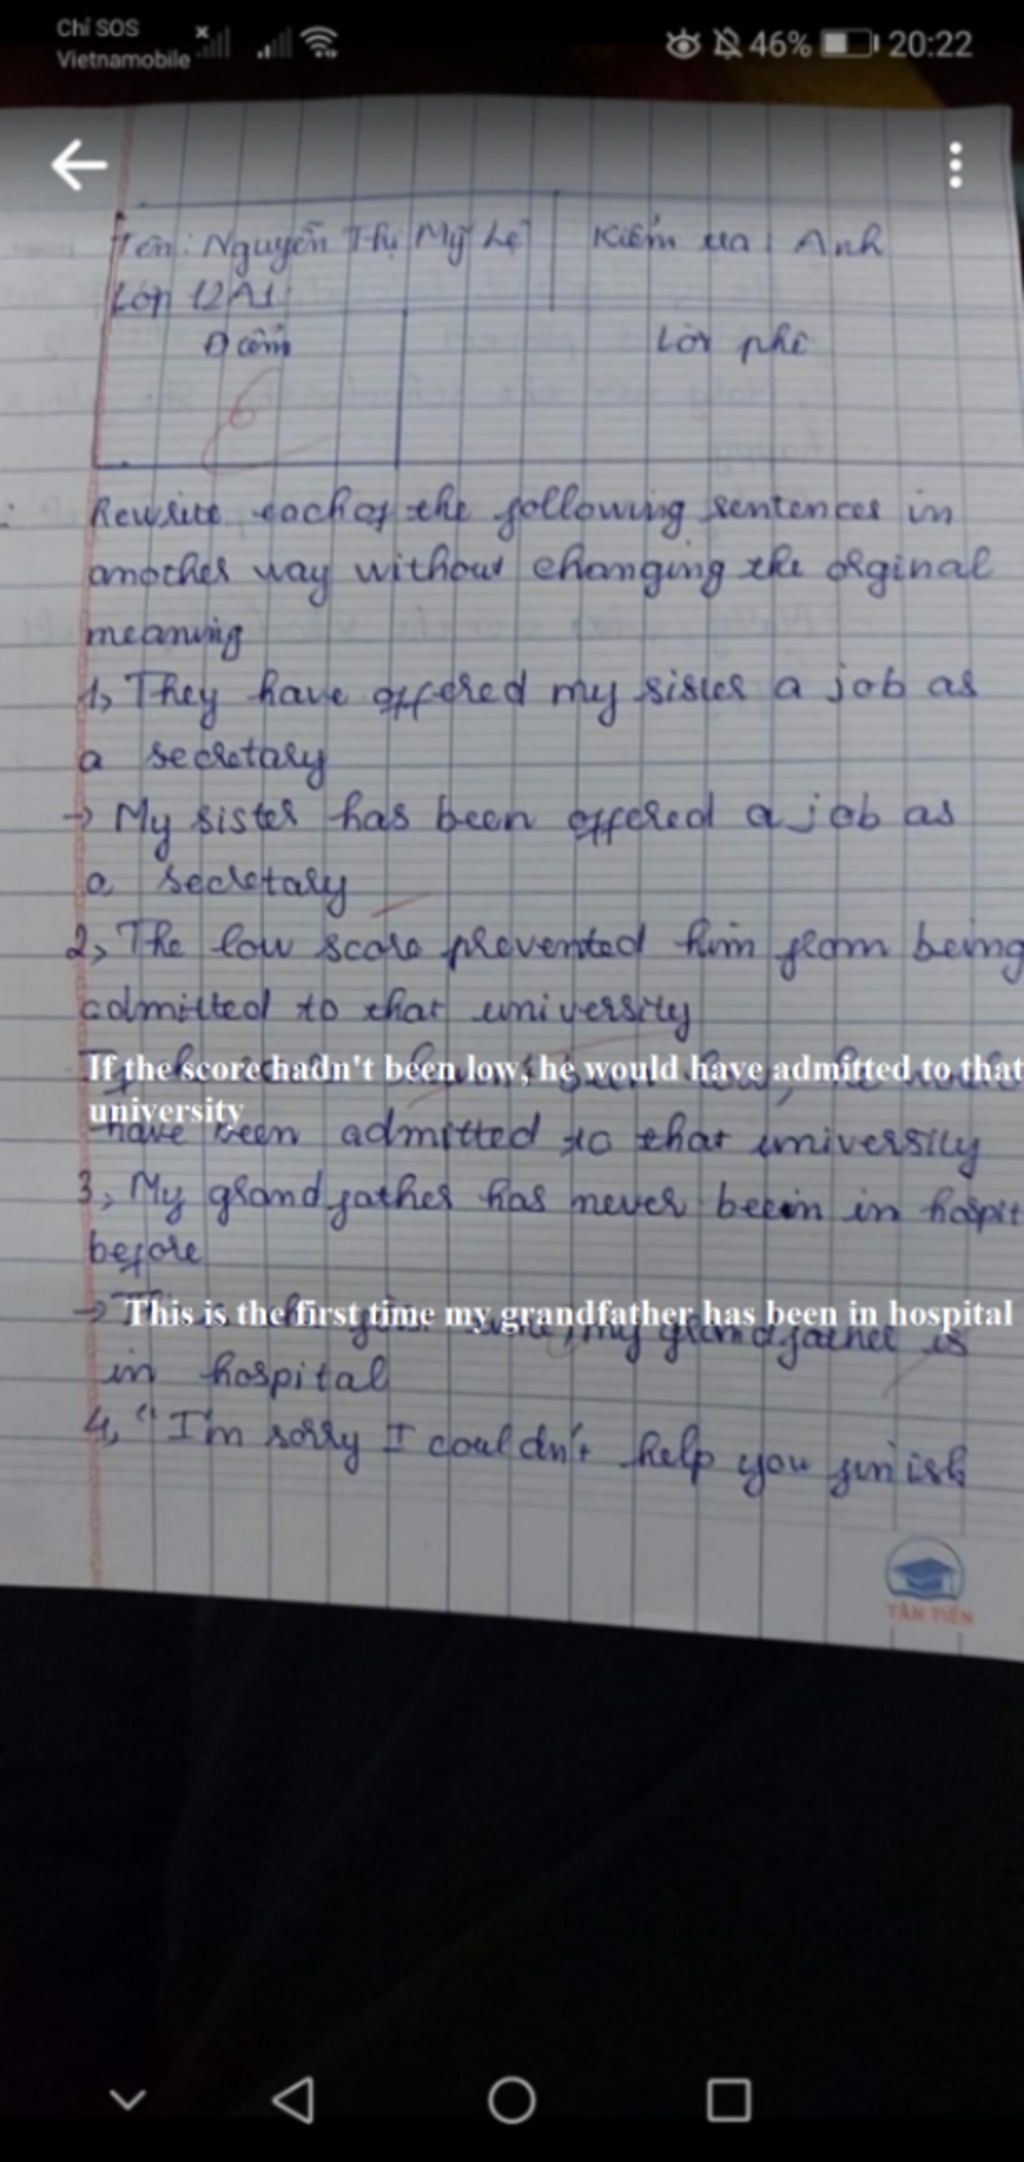 Chỉ SOS
Vietnamobile
46% 20:22
Tên: Nguyễn Thị Mỹ Lệ Kiểm tra Anh
Lớp 12A1
Điểm Lời phê
6
Rewrite each of the following sentences in
another way without changing the orginal
meaning
1, They have offered my sister a job as
a secretary
→ My sister has been offered a job as
a secretary
2, The low score prevented him from being
admitted to that university
If the score hadn't been low, he would have admitted to that
university
have been admitted to that university
3, My grandfather has never been in hospit
before
→ This is the first time my grandfather has been in hospital
my grandfather is
in hospital
4, "I'm sorry I couldn't help you finish
TÂN TIẾN